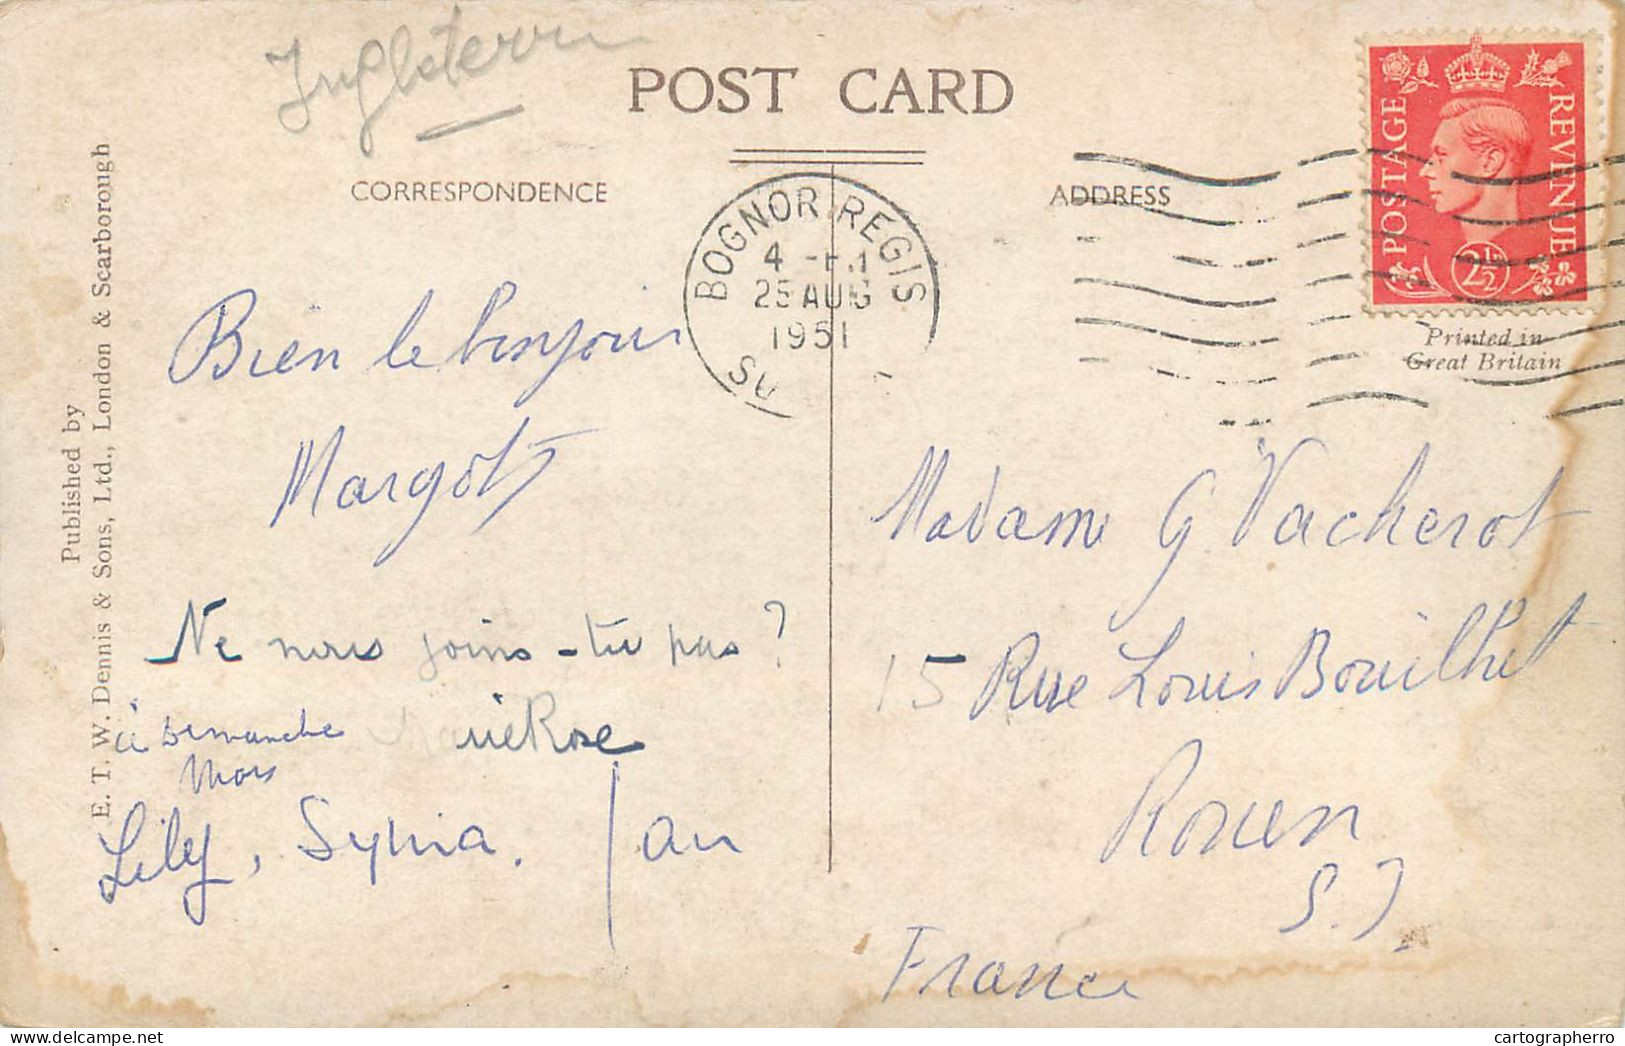 Ingleterra
POST CARD
CORRESPONDENCE
ADDRESS
POSTAGE
REVENUE
2½
Printed in
Great Britain
BOGNOR REGIS
4 - PM
25 AUG
1951
Published by
E. T. W. Dennis & Sons, Ltd., London & Scarborough
Bien le bonjour
Margot
Ne nous joins-tu pas?
à Demanche
Marie Rose
Lily, Sylvia. Jan
Madame G. Vacherot
15 Rue Louis Bouilhet
Rouen
S. I.
France
delcampe.net
cartographerro